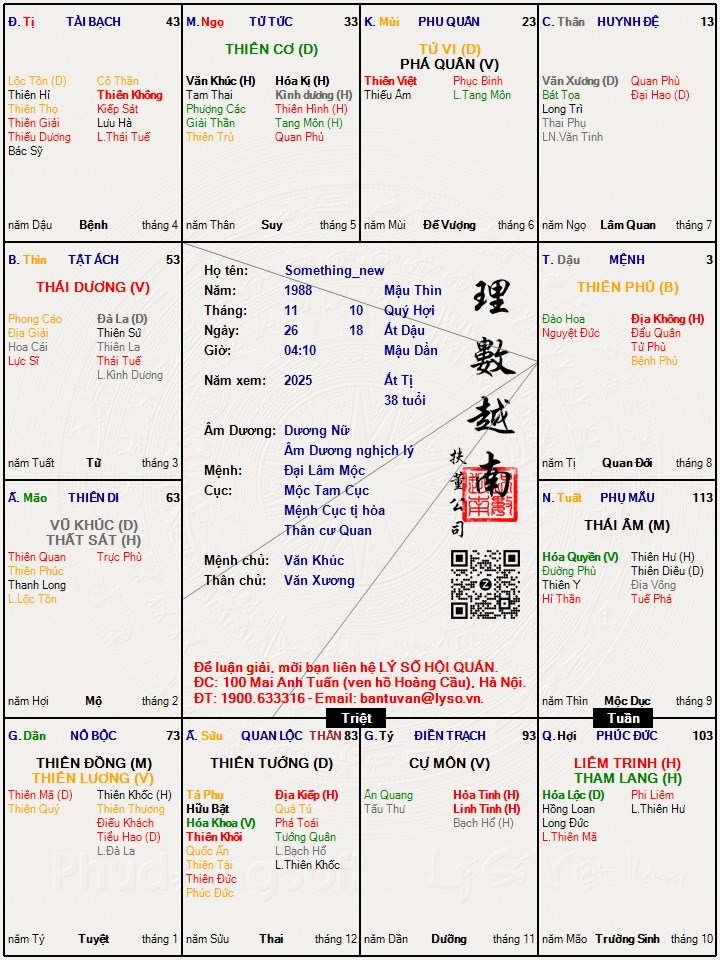 Đ. Tị TÀI BẠCH 43
Lộc Tồn (D) Cô Thần
Thiên Hỉ Thiên Không
Thiên Thọ Kiếp Sát
Thiên Giải Lưu Hà
Thiếu Dương L.Thái Tuế
Bác Sỹ
năm Dậu Bệnh tháng 4
M. Ngọ TỬ TỨC 33
THIÊN CƠ (D)
Văn Khúc (H) Hóa Kị (H)
Tam Thai Kình dương (H)
Phượng Các Thiên Hình (H)
Giải Thần Tang Môn (H)
Thiên Trù Quan Phủ
năm Thân Suy tháng 5
K. Mùi PHU QUÂN 23
TỬ VI (D)
PHÁ QUÂN (V)
Thiên Việt Phục Binh
Thiếu Âm L.Tang Môn
năm Mùi Đế Vượng tháng 6
C. Thân HUYNH ĐỆ 13
Văn Xương (D) Quan Phù
Bát Tọa Đại Hao (D)
Long Trì
Thai Phụ
LN.Văn Tinh
năm Ngọ Lâm Quan tháng 7
B. Thìn TẬT ÁCH 53
THÁI DƯƠNG (V)
Phong Cáo Đà La (D)
Địa Giải Thiên Sứ
Hoa Cái Thiên La
Lực Sĩ Thái Tuế
L.Kình Dương
năm Tuất Tử tháng 3
Họ tên: Something_new
Năm: 1988 Mậu Thìn
Tháng: 11 10 Quý Hợi
Ngày: 26 18 Ất Dậu
Giờ: 04:10 Mậu Dần
Năm xem: 2025 Ất Tị
38 tuổi
Âm Dương: Dương Nữ
Âm Dương nghịch lý
Mệnh: Đại Lâm Mộc
Cục: Mộc Tam Cục
Mệnh Cục tị hòa
Thân cư Quan
Mệnh chủ: Văn Khúc
Thân chủ: Văn Xương
理數越南
扶董公司
Để luận giải, mời bạn liên hệ LÝ SỐ HỘI QUÁN.
ĐC: 100 Mai Anh Tuấn (ven hồ Hoàng Cầu), Hà Nội.
ĐT: 1900.633316 - Email: bantuvan@lyso.vn.
T. Dậu MỆNH 3
THIÊN PHỦ (B)
Đào Hoa Địa Không (H)
Nguyệt Đức Đẩu Quân
Tử Phù
Bệnh Phù
năm Tị Quan Đới tháng 8
Ấ. Mão THIÊN DI 63
VŨ KHÚC (D)
THẤT SÁT (H)
Thiên Quan Trực Phù
Thiên Phúc
Thanh Long
L.Lộc Tồn
năm Hợi Mộ tháng 2
N. Tuất PHỤ MẪU 113
THÁI ÂM (M)
Hóa Quyền (V) Thiên Hư (H)
Đường Phù Thiên Diêu (D)
Thiên Y Địa Võng
Hỉ Thần Tuế Phá
năm Thìn Mộc Dục tháng 9
Triệt
Tuần
G. Dần NÔ BỘC 73
THIÊN ĐỒNG (M)
THIÊN LƯƠNG (V)
Thiên Mã (D) Thiên Khốc (H)
Thiên Quý Thiên Thương
Điếu Khách
Tiểu Hao (D)
L.Đà La
năm Tý Tuyệt tháng 1
Ấ. Sửu QUAN LỘC THÂN 83
THIÊN TƯỚNG (D)
Tả Phụ Địa Kiếp (H)
Hữu Bật Quả Tú
Hóa Khoa (V) Phá Toái
Thiên Khôi Tướng Quân
Quốc Ấn L.Bạch Hổ
Thiên Tài L.Thiên Khốc
Thiên Đức
Phúc Đức
năm Sửu Thai tháng 12
G. Tý ĐIỀN TRẠCH 93
CỰ MÔN (V)
Ân Quang Hỏa Tinh (H)
Tấu Thư Linh Tinh (H)
Bạch Hổ (H)
năm Dần Dưỡng tháng 11
Q. Hợi PHÚC ĐỨC 103
LIÊM TRINH (H)
THAM LANG (H)
Hóa Lộc (D) Phi Liêm
Hồng Loan L.Thiên Hư
Long Đức
L.Thiên Mã
năm Mão Trường Sinh tháng 10